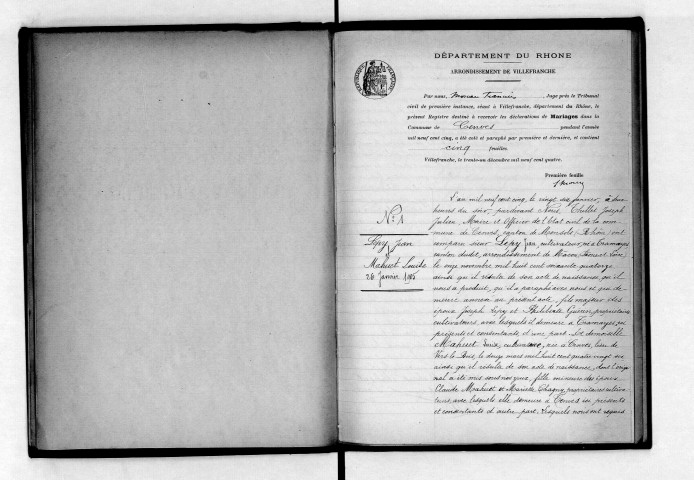 DÉPARTEMENT DU RHONE
ARRONDISSEMENT DE VILLEFRANCHE
Par nous, Juge près le Tribunal
civil de première instance, séant à Villefranche, département du Rhône, le
présent Registre destiné à recevoir les déclarations de Mariages dans la
Commune de Cenves pendant l'année
mil neuf cent cinq, a été coté et paraphé par première et dernière, et contient
cinq feuilles.
Villefranche, le trente-un décembre mil neuf cent quatre.
Première feuille
N° 1
Lépy Jean
&
Mahuet Louise
26 Janvier 1905
L'an mil neuf cent cinq, le vingt six janvier, à
heures du soir, pardevant Nous, Thillet Joseph
Julien, Maire et Officier de l'état civil de la com-
mune de Cenves, canton de Monsols (Rhône) ont
comparu sieur Lépy Jean cultivateur, né à Tramayes
canton dudit, arrondissement de Mâcon, Saône et Loire,
le onze novembre mil huit cent soixante quatorze
ainsi qu'il résulte de son acte de naissance, qu'il
nous a produit, qu'il a paraphé avec nous et qui de-
meure annexé au présent acte, fils majeur des
époux Joseph Lépy et Philiberte Guérin, propriétaires
cultivateurs, avec lesquels il demeure à Tramayes, ici
présents et consentants d'une part. Et demoiselle
Mahuet Louise, cultivatrice, née à Cenves, lieu de
Vers le Bois, le douze mars mil huit cent quatre vingt
ainsi qu'il résulte de son acte de naissance, dont l'origi-
nal a été mis sous nos yeux, fille mineure des époux
Claude Mahuet et Mariette Chagny, propriétaires cultiva-
teurs, avec lesquels elle demeure à Cenves ici présents
et consentants d'autre part. Lesquels nous ont requis